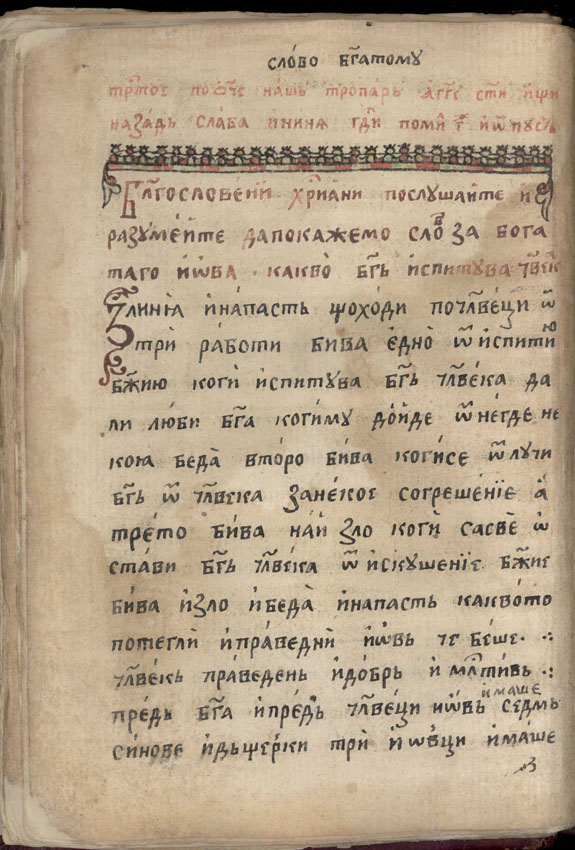 сло́во бг҃атому
трт҃ое по ѻ҃че на́шь тропарь
наза́дь сла́ва и нинꙗ гд҃и поми
Бл҃гослове́ни хрⷭ҇тиа́ни послушаите и
разуме́йте да покажемо сло́в за бога
таго и҆ѡва · какво̀ бг҃ь испитува чл҃век
Злиніѧ и҆ напасть що ходи по чл҃веци ѿ
три ра́боти бива е҆дно̀ ѿ испитию
бж҃ию коги̇ и҆спитува бг҃ь чл҃века да
ли лю́би бг҃а коги̇му до́йде ѿ негде не
кою беда̀ вто́ро бива коги̇се ѿлучи
бг҃ь ѿ чл҃века за некое согреше́нїе а҆
тре́то би́ва на́й зло коги̇ сасве̇ ѡ
ста́ви бг҃ь чл҃века ѿ искуше́нїе бж҃ие
бива и҆зло и҆беда̀ и҆напасть какво́то
потегли̇ и҆пра́ведни̇ и҆ѡвь че бе́ше ·:
чл҃ве́кь пра́ведень и҆до́брь и҆ мл҃тивь ·:
пре́дь бг҃а и҆пре́дь чл҃ве́ци и҆ѡвь имаше се́дмь
си́нове и҆дьще́рки три̇ и҆ ѡвци и҆ма́ше